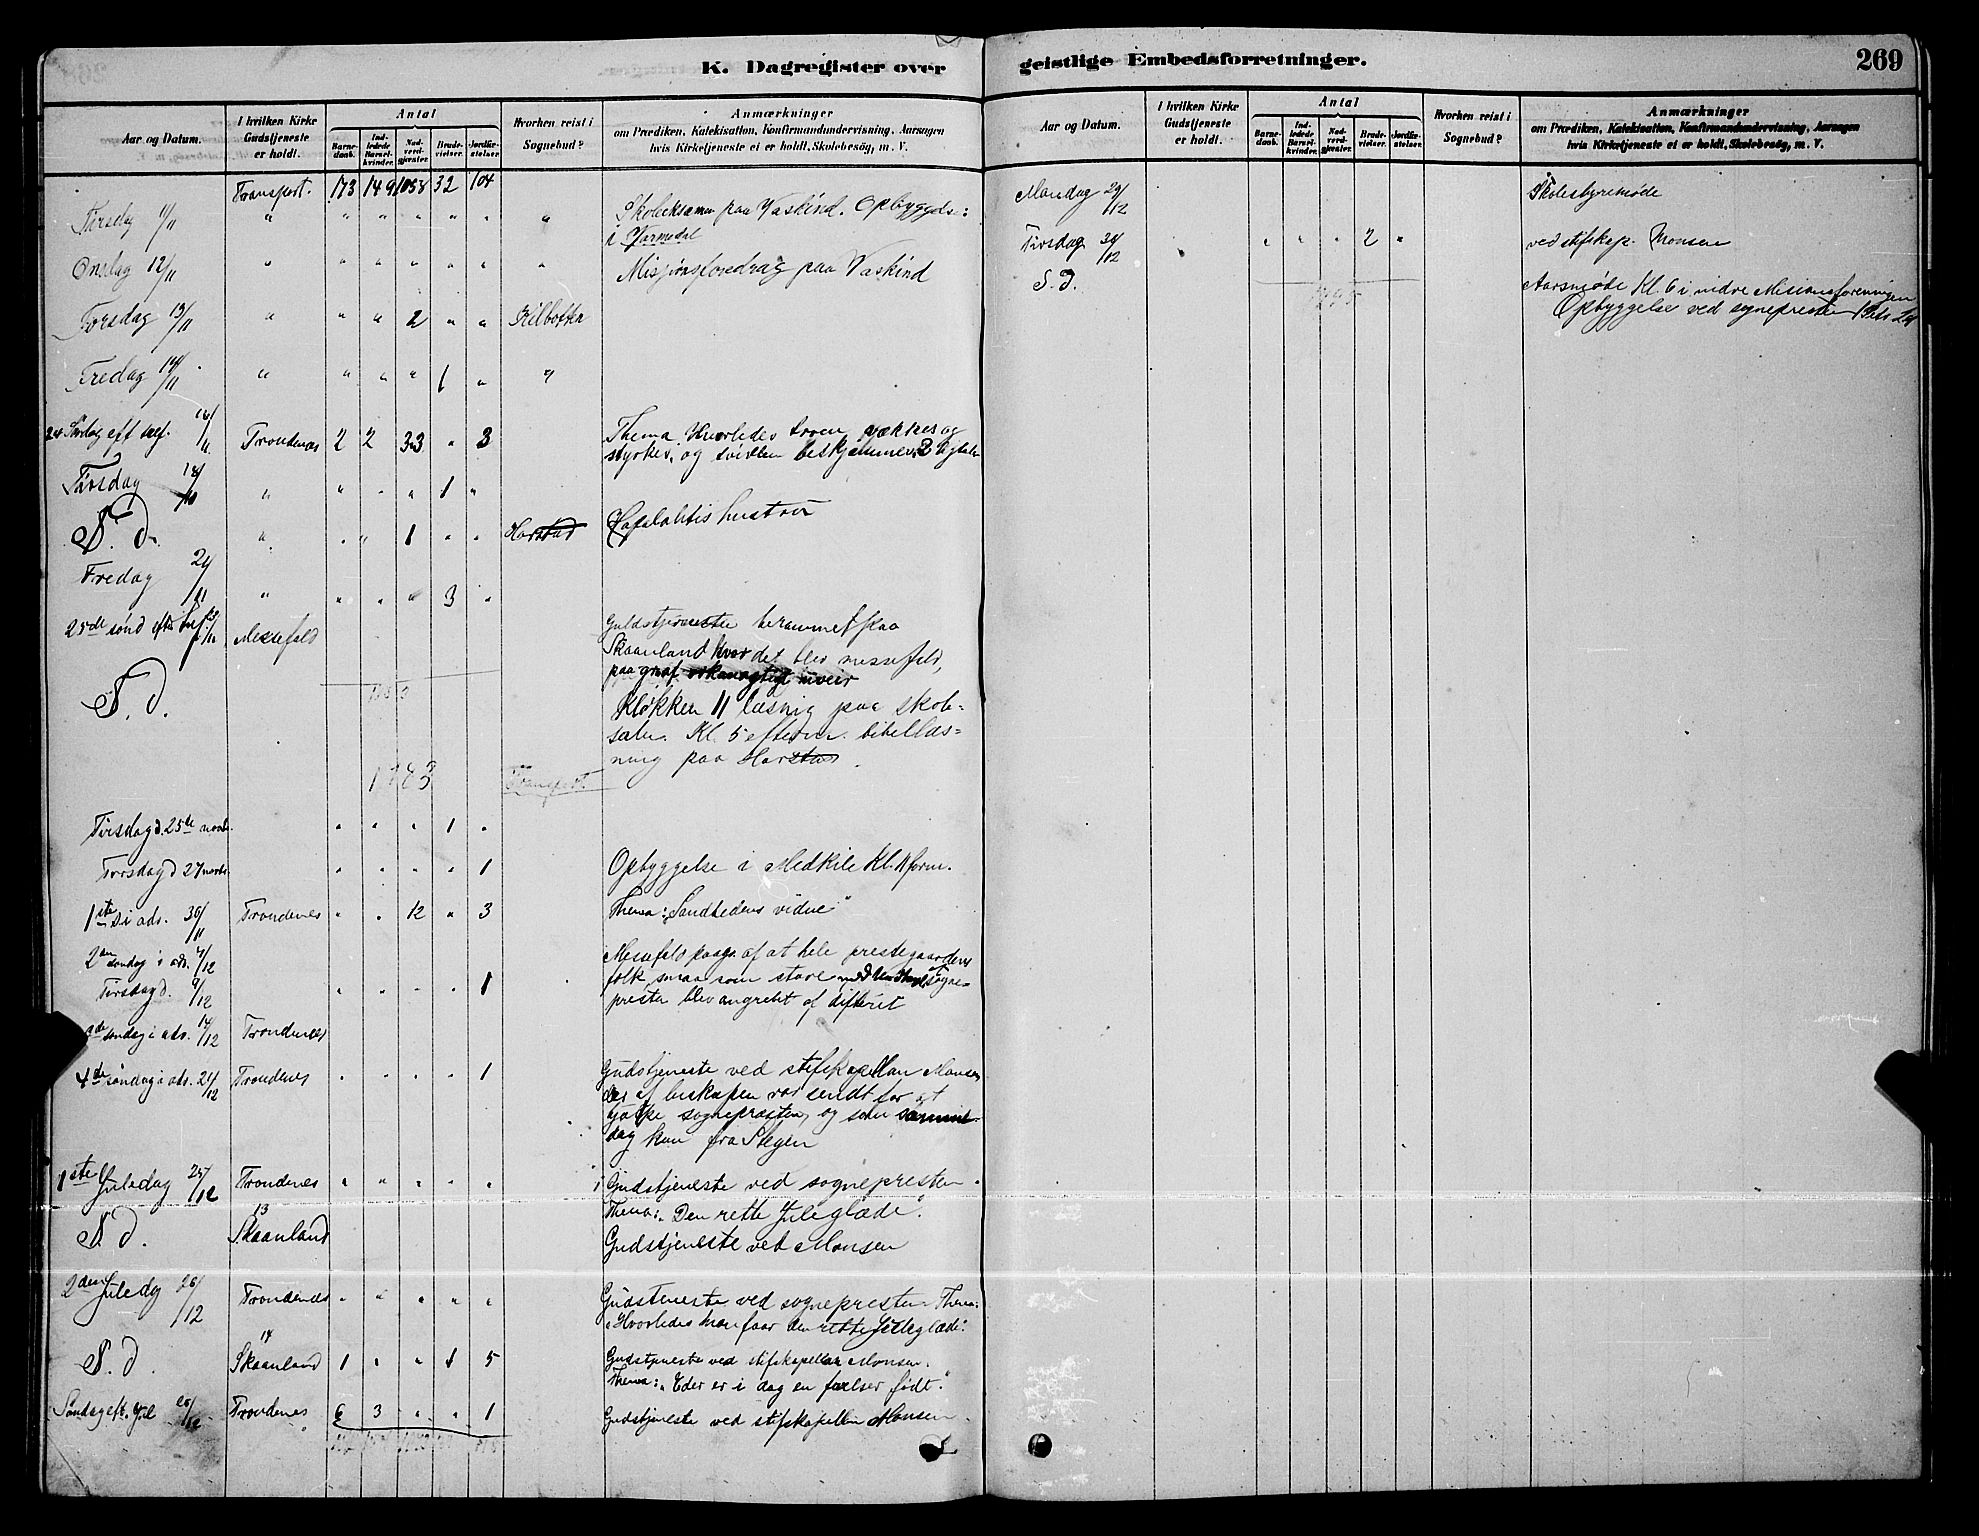 K. Dagregister over
Aar og Datum. I hvilken Kirke Gudstjeneste er holdt. Antal Barnedaab. Indledede Barselkvinder. Nadvordgjester. Brudevielser. Jordfæstelser. Hvorhen reist i Sognebud? Anmærkninger om Prædiken, Katekisation, Konfirmandundervisning, Aarsagen hvis Kirketjeneste ei er holdt, Skolebesøg, m. V.
Transport. 173 149 1058 32 104
Tirsdag 11/11 " " " " " " " Skoleeksamen paa Vaskind. Opbyggelse
i
Onsdag 12/11 " " " " " " " Misjonsforedrag paa Vaskind
Torsdag 13/11 " " " 2 " " Kilbotten
Fredag 14/11 " " " " 1 " "
24 Søndag eft tref. 16/11 Trondenes 2 2 33 " 3 Thema: Hvorledes troen vækkes og
styrkes, og beskjæmmes. 2 ligtaler
Tirsdag 18/10 " " " " 1 "
S. d. " " " 1 " " Harstad hustru
Fredag 21/11 " " " " 3 "
25de sønd efter tref. 23/11 Messefald Gudstjeneste berammet paa
Skaanland hvor det blev messefald,
S. d. paa grund orkanagtigt uveir
Klokken 11 læsnig paa skole-
salen. Kl. 5 efterm. bibellæs-
ning paa Harstad.
1783 Transport.
Tirsdag d. 25de novb. " " " 1 "
Torsdag d 27 novb. " " " " 1 Opbyggelse i Medkile Kl. 11 form.
1ste s i adv. 30/11 Trondenes " " 12 " 3 Thema: "Sandhedens vidne"
2den søndag i adv. 7/12 Messefald paagr. af at hele prestegaardens
Tirsdag d. 9/12 " " " " 1 folk smaa som store sogne-
presten blev angrebt af difterit
søndag i adv. 14/12 Trondenes
4de søndag i adv. 21/12 Trondenes " " " " 1 Gudstjeneste ved stifskapellan Monsen
der af biskopen var sendt for at
hjælpe sognepræsten, og som samme
dag kom fra Stegen
1ste Juledag 25/12 Trondenes " " " " " Gudstjeneste ved sognepresten.
Thema: "Den rette Juleglæde".
S. d. 13 Skaanland Gudstjeneste ved Monsen
2den Juledag 26/12 Trondenes " " " " " Gudstjeneste ved sognepresten Thema:
"Hvorledes man faar den rette Juleglæde."
S. d. 14 Skaanland 1 " " 1 5 Gudstjeneste ved stifskapellan Monsen.
Thema: "Eder er i dag en frelser født."
Søndag eft. Jul 28/12 Trondenes 6 3 " " 1 Gudstjeneste ved stifskapellan Monsen
geistlige Embedsforretninger. 269
Aar og Datum. I hvilken Kirke Gudstjeneste er holdt. Antal Barnedaab. Indledede Barselkvinder. Nadvordgjester. Brudevielser. Jordfæstelser. Hvorhen reist i Sognebud? Anmærkninger om Prædiken, Katekisation, Konfirmandundervisning, Aarsagen hvis Kirketjeneste ei er holdt, Skolebesøg, m. V.
Mandag 29/12 Skolestyremøde
Tirsdag 30/12 " " " 2 " ved stifskap. Monsen
S. d. Aarsmøde Kl. 6 i indre Misionsforeningen
Opbyggelse ved sognepresten